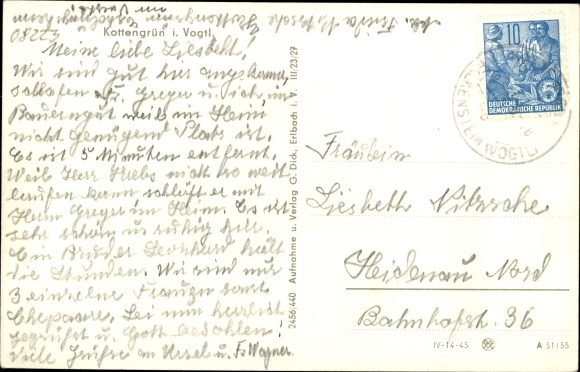 Abs. Frieda Nitzsche
08223
Kottengrün i. Vogtl.
Meine liebe Liesbeth!
Wir sind gut hier angekommen,
schlafen Fr. Greger u. ich, im
Bauerngut weil im Heim
nicht genügend Platz ist.
Es ist 5 Minuten entfernt.
Weil Herr Krebs nicht so weit
laufen kann schläft er mit
Herrn Greger im Heim. Es ist
sehr schön u. ruhig hier.
Ein Bruder Leonhard hält
die Stunden. Wir sind nur
3 einzelne Frauen sonst
Ehepaare. Sei nun herzlich
gegrüßt u. Gott befohlen!
Viele Grüße an Ursel u. Fr. Wagner
2456/440 Aufnahme u. Verlag G. Dick, Erlbach i. V. III/23/27
10
5
DEUTSCHE
DEMOKRATISCHE REPUBLIK
(VOGTL)
Fräulein
Liesbeth Nitzsche
Heidenau Nord
Bahnhofstr. 36
IV-14-45
A 51/55